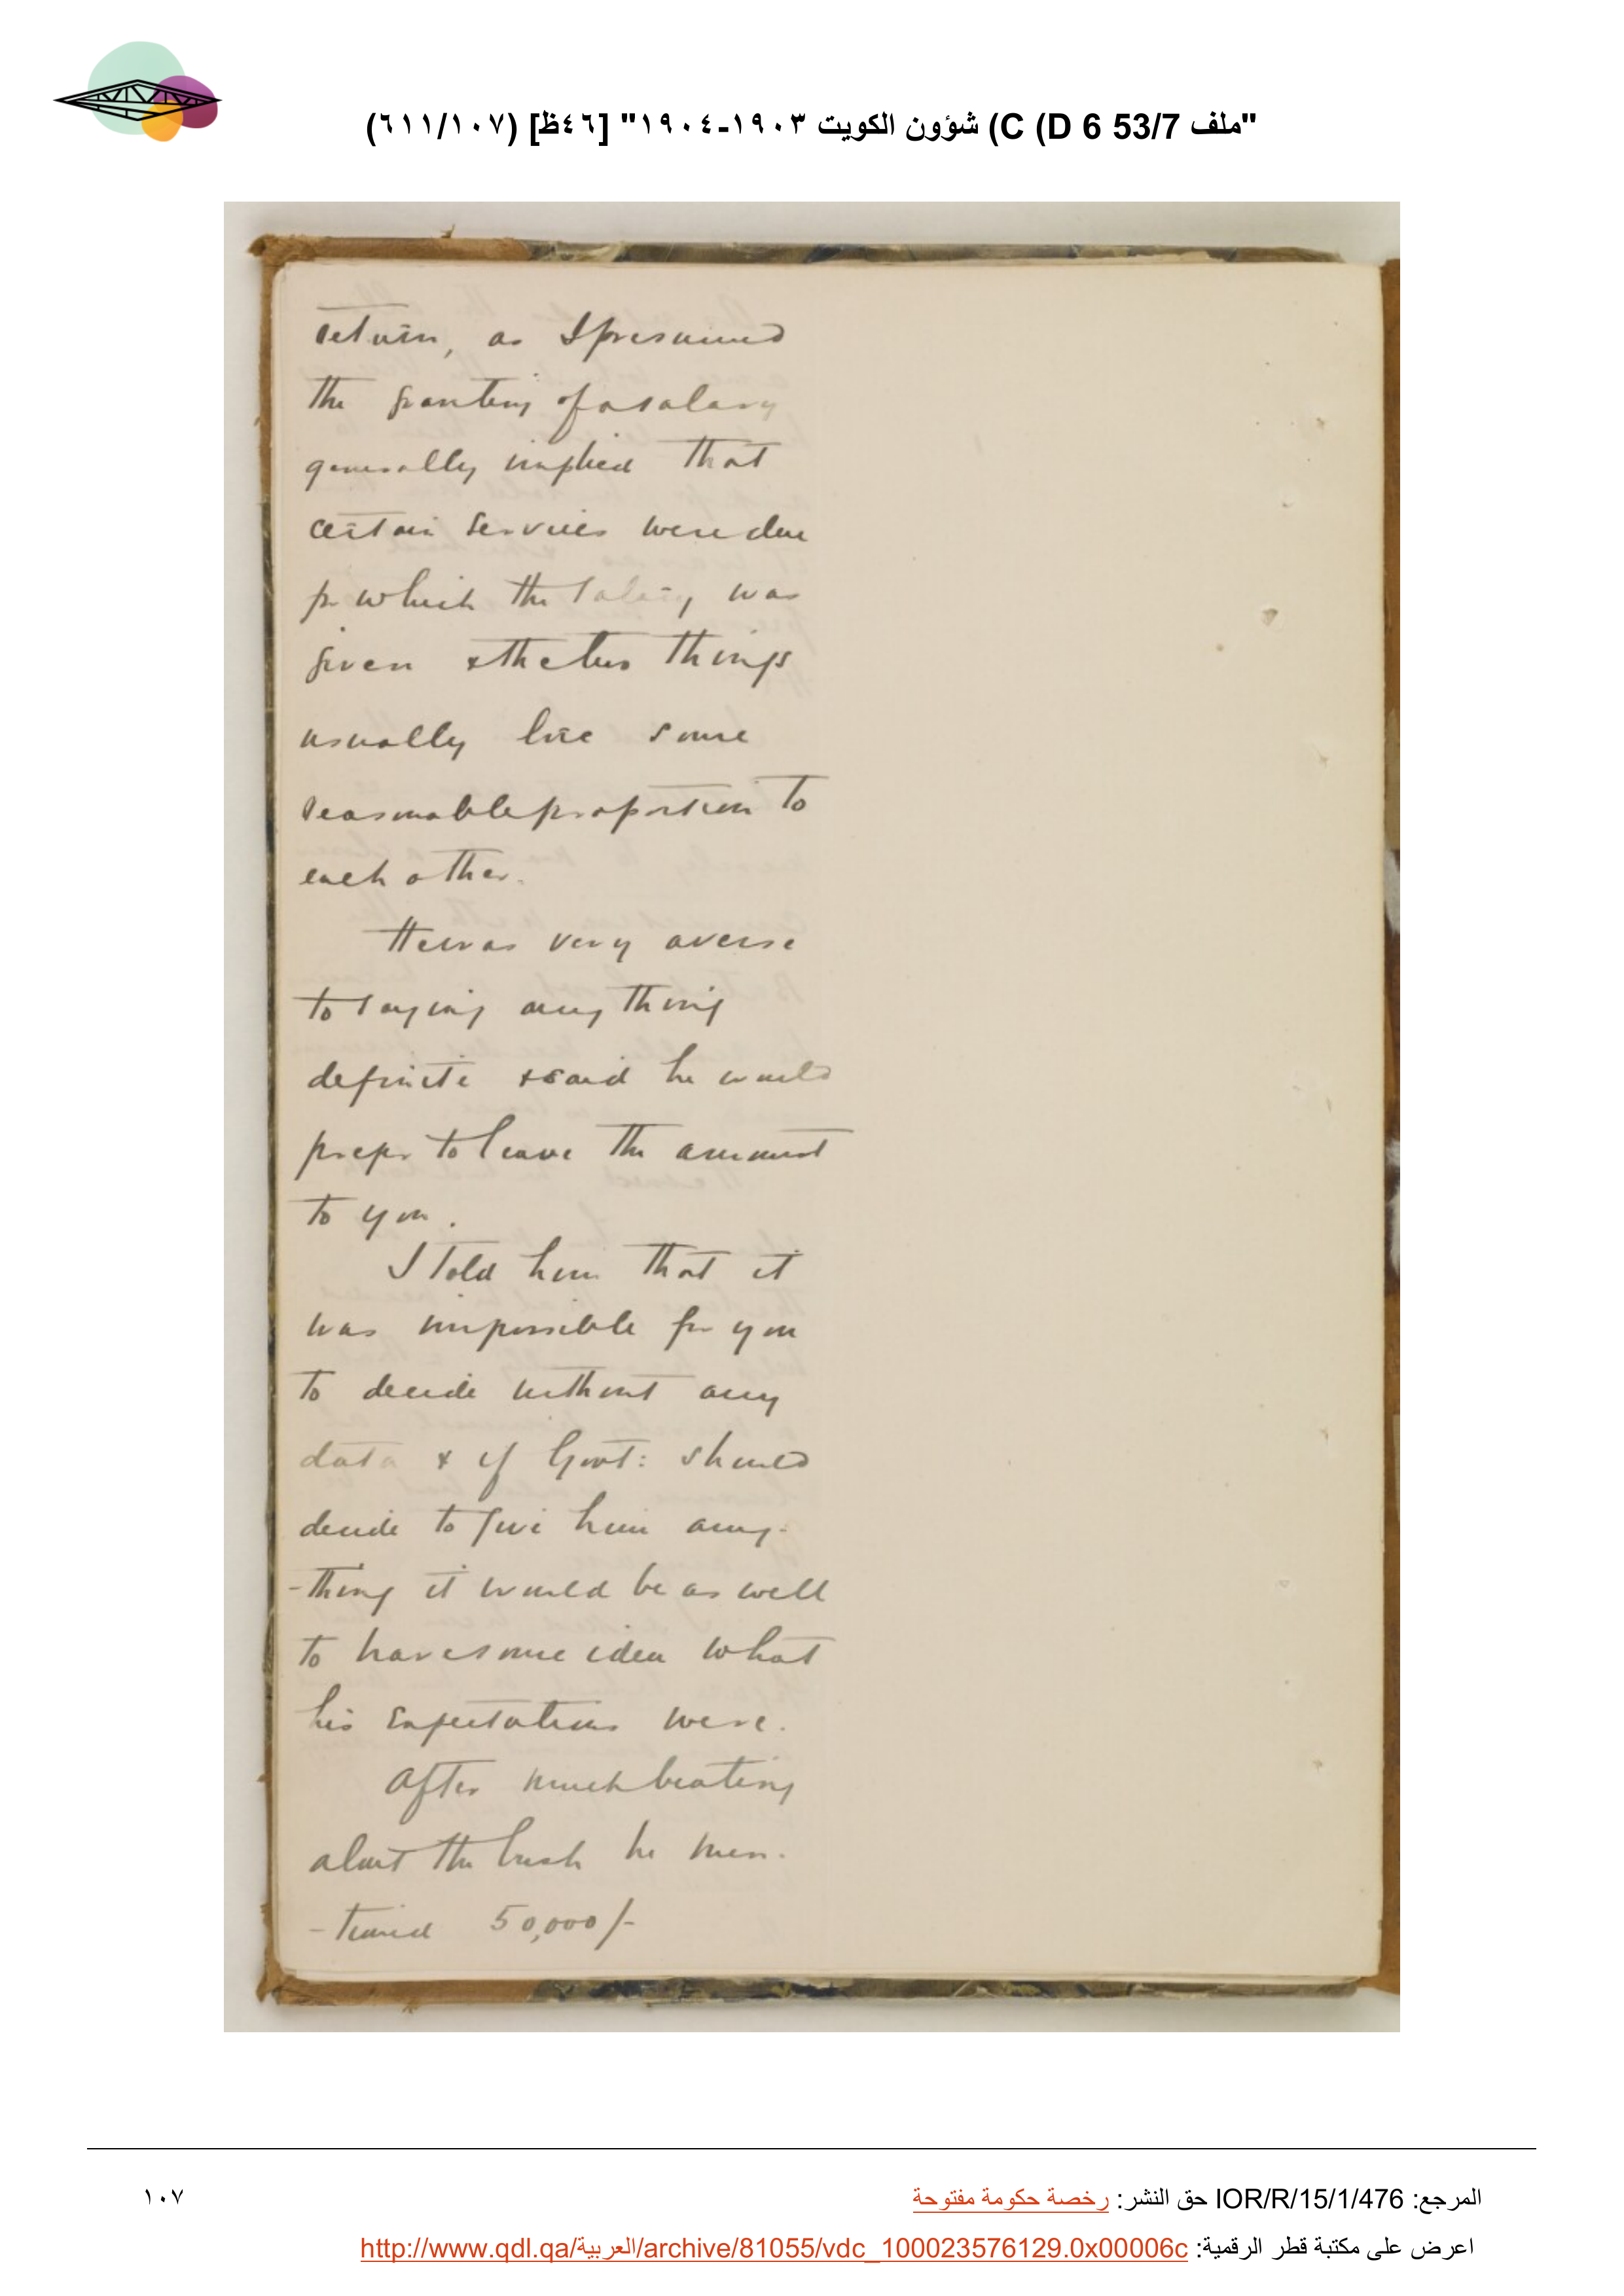 "ملف 53/7 D 6) C) شؤون الكويت ١٩٠٣-١٩٠٤" [٤٦ظ] (٦١١/١٠٧)
return, as I presumed
the granting of a salary
generally implied that
certain services were due
for which the salary was
given & the two things
usually bore some
reasonable proportion to
each other.
He was very averse
to saying any thing
definite & said he would
prefer to leave the amount
to you.
I told him that it
was impossible for you
to decide without any
data & if Govt: should
decide to give him any-
-thing it would be as well
to have some idea what
his expectations were.
After much beating
about the bush he men-
-tioned 50,000/-
المرجع: IOR/R/15/1/476 حق النشر: رخصة حكومة مفتوحة
١٠٧
اعرض على مكتبة قطر الرقمية: http://www.qdl.qa/العربية/archive/81055/vdc_100023576129.0x00006c